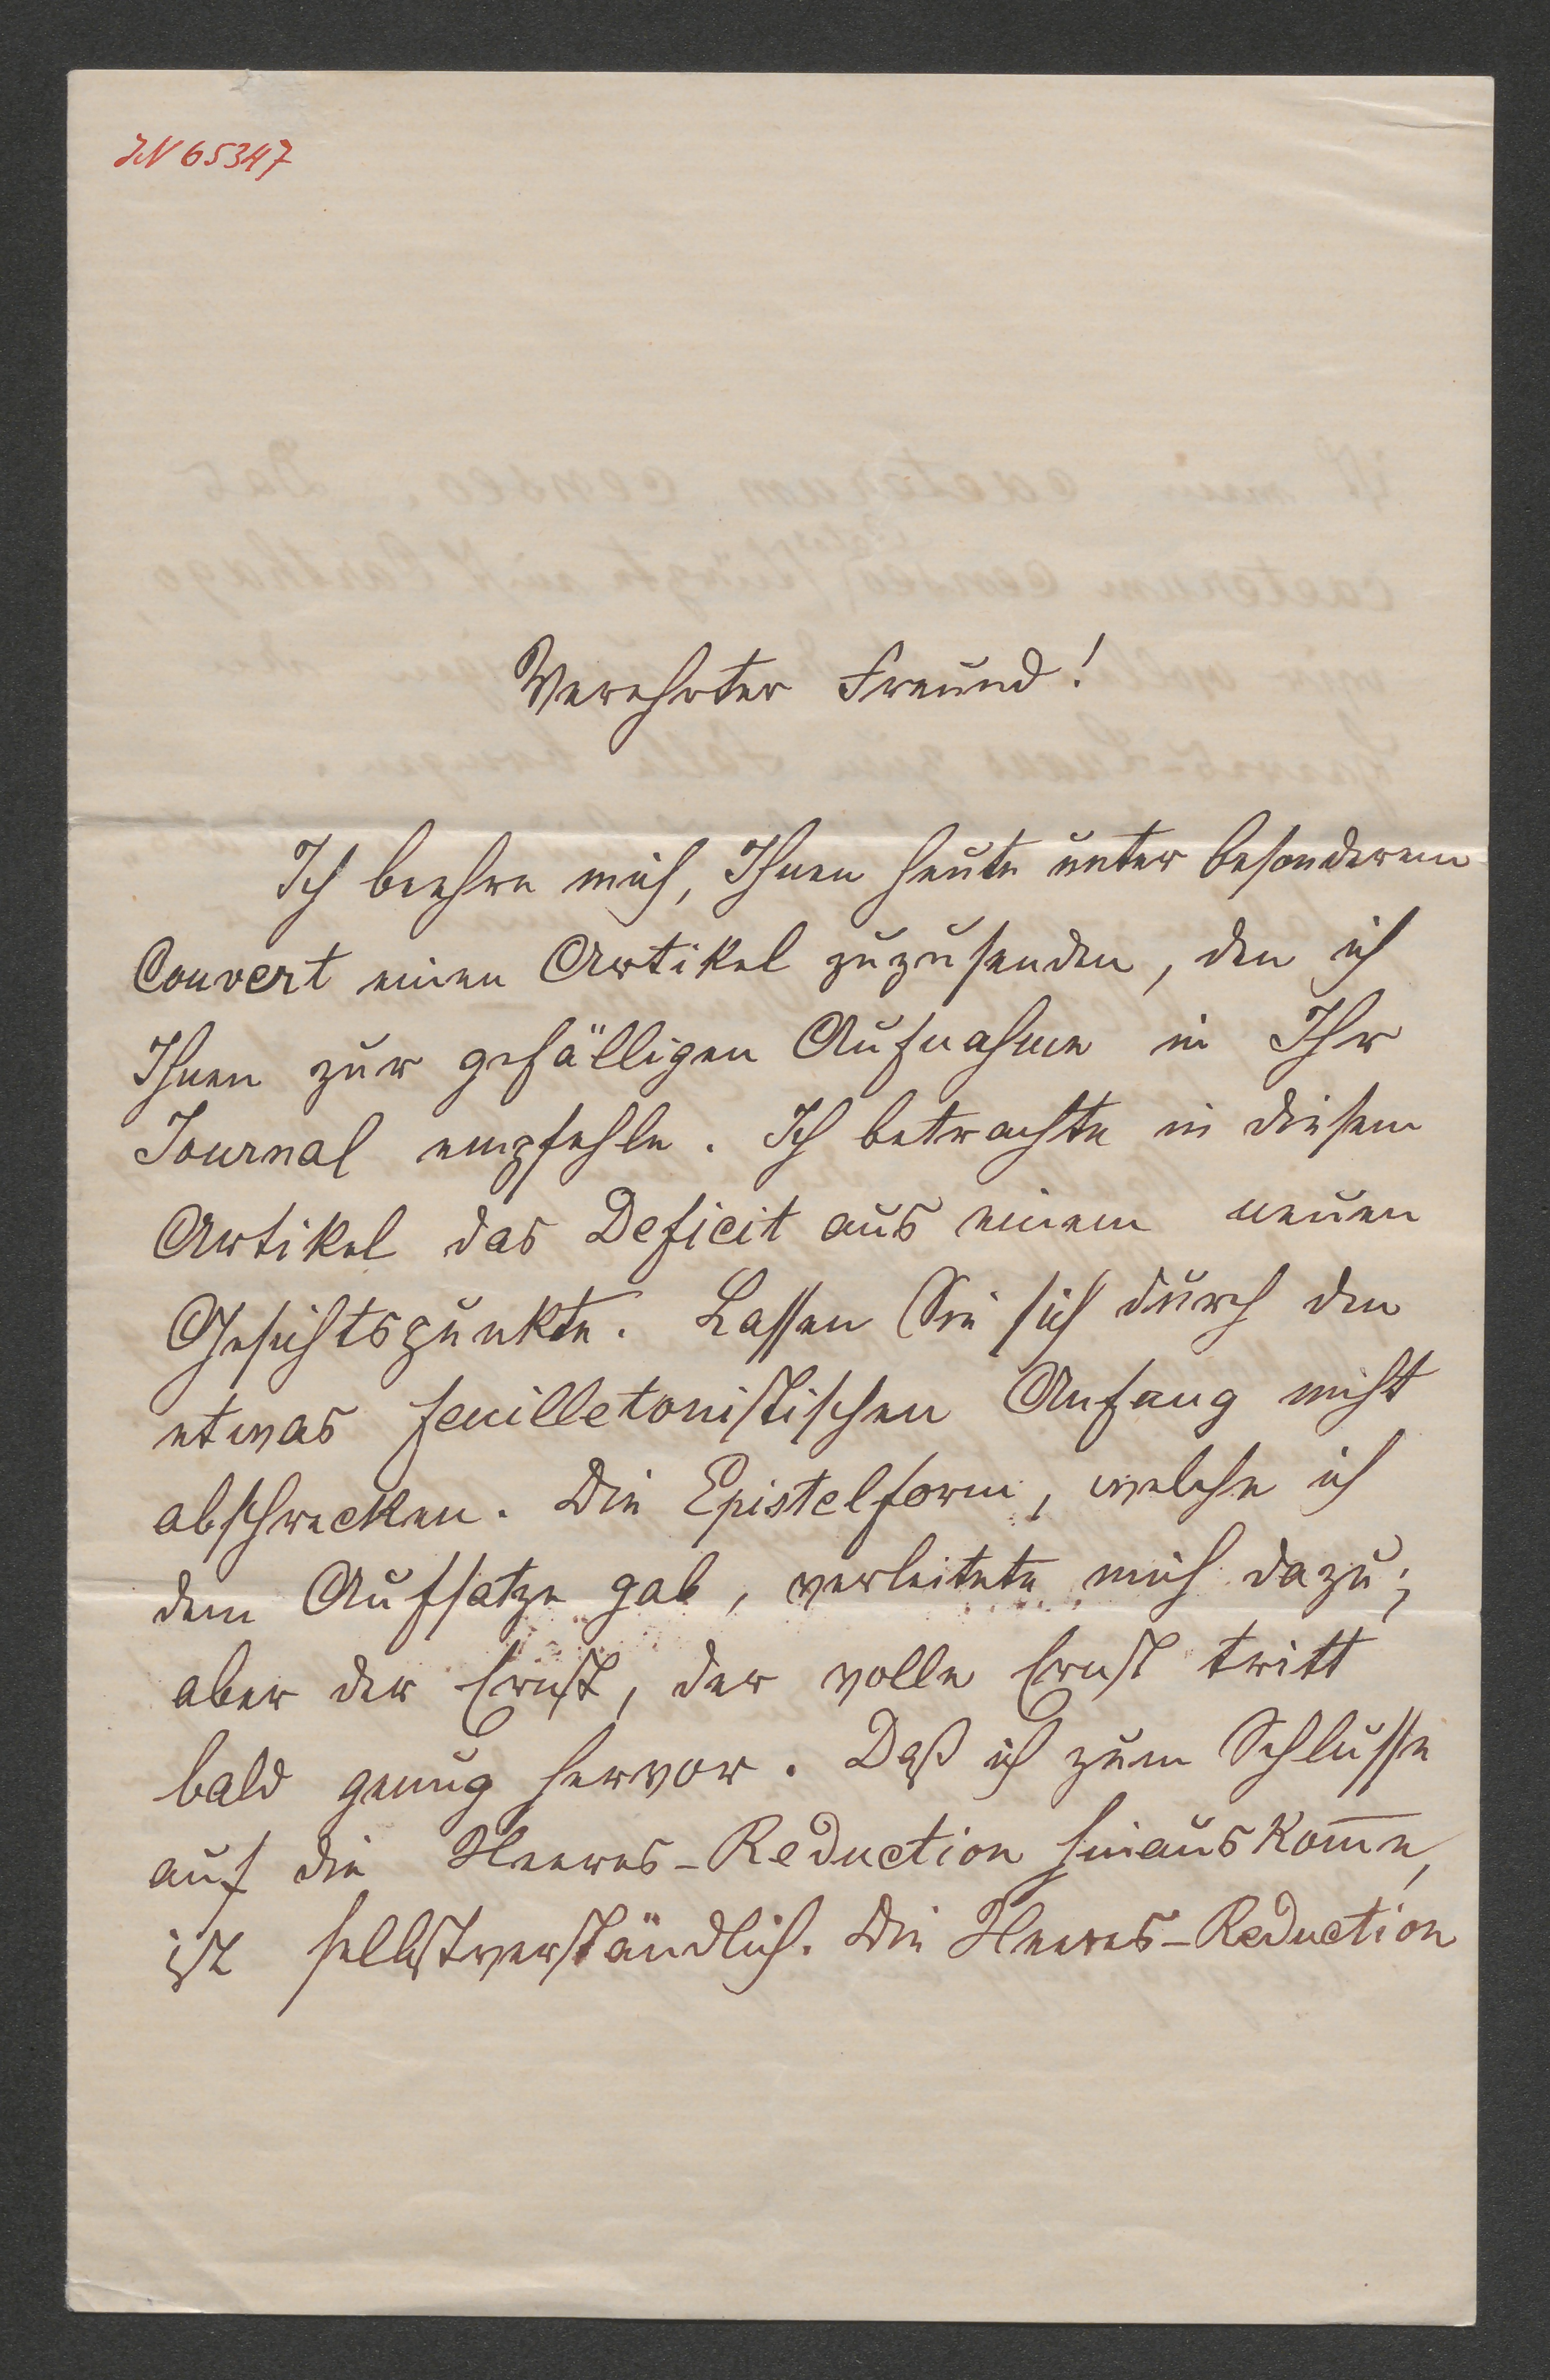 IN 65347
Verehrter Freund!
Ich beehre mich, Ihnen heute unter besonderem
Couvert einen Artikel zuzusenden, den ich
Ihnen zur gefälligen Aufnahme in Ihr
Journal empfehle. Ich betrachte in diesem
Artikel das Deficit aus einem neuen
Gesichtspunkte. Lassen Sie sich durch den
etwas feuilletonistischen Anfang nicht
abschrecken. Die Epistelform, welche ich
dem Aufsatze gab, verleitete mich dazu;
aber der Ernst, der volle Ernst tritt
bald genug hervor. Daß ich zum Schlusse
auf die Heeres-Reduction hinauskom̅e,
ist selbstverständlich. Die Heeres-Reduction